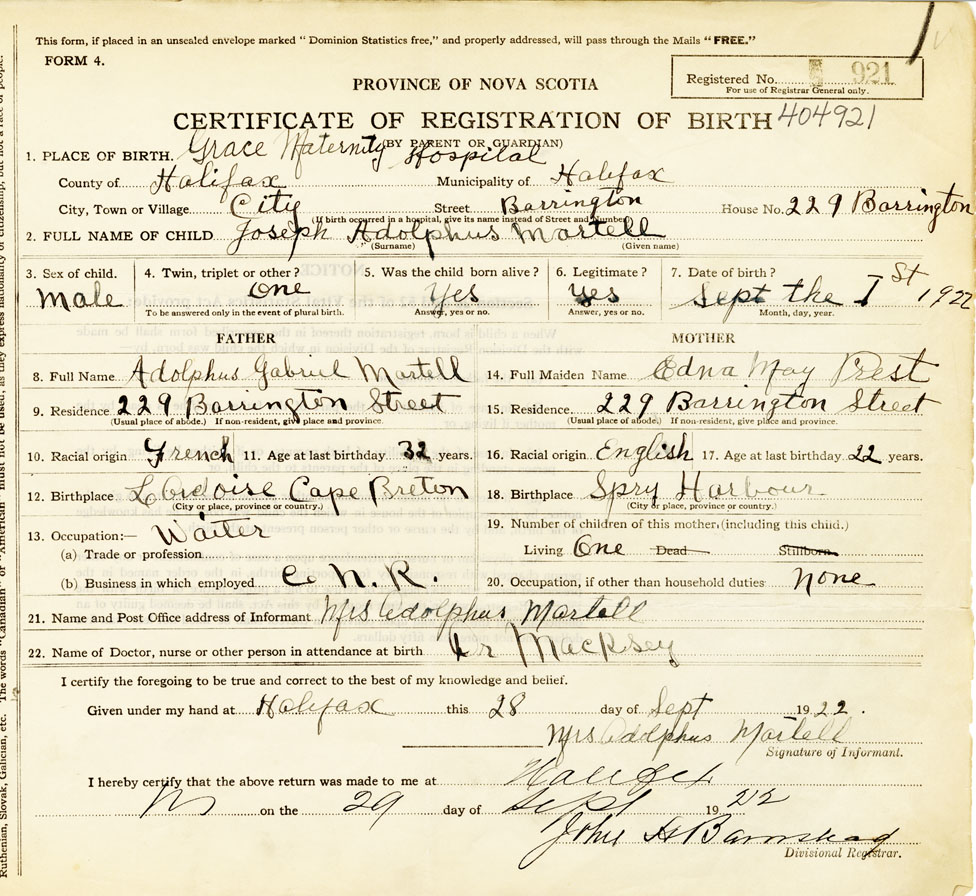 This form, if placed in an unsealed envelope marked "Dominion Statistics free," and properly addressed, will pass through the Mails "FREE."
FORM 4.
Registered No. 921
For use of Registrar General only.
PROVINCE OF NOVA SCOTIA
CERTIFICATE OF REGISTRATION OF BIRTH 404921
(BY PARENT OR GUARDIAN)
1. PLACE OF BIRTH. Grace Maternity Hospital
County of Halifax Municipality of Halifax
City, Town or Village City Street Barrington House No. 229 Barrington
(If birth occurred in a hospital, give its name instead of Street and Number)
2. FULL NAME OF CHILD Joseph Adolphus Martell
(Surname) (Given name)
3. Sex of child. 4. Twin, triplet or other? 5. Was the child born alive? 6. Legitimate? 7. Date of birth?
Male One Yes Yes Sept the 1st 1922
To be answered only in the event of plural birth. Answer, yes or no. Answer, yes or no. Month, day, year.
FATHER MOTHER
8. Full Name Adolphus Gabriel Martell 14. Full Maiden Name Edna May Prest
9. Residence 229 Barrington Street 15. Residence 229 Barrington Street
(Usual place of abode.) If non-resident, give place and province. (Usual place of abode.) If non-resident, give place and province.
10. Racial origin French 11. Age at last birthday 32 years. 16. Racial origin English 17. Age at last birthday 22 years.
12. Birthplace LArdoise Cape Breton 18. Birthplace Spry Harbour
(City or place, province or country.) (City or place, province or country.)
13. Occupation:— Waiter 19. Number of children of this mother (including this child.)
(a) Trade or profession Living One Dead Stillborn
(b) Business in which employed C. N. R. 20. Occupation, if other than household duties none
21. Name and Post Office address of Informant Mrs Adolphus Martell
22. Name of Doctor, nurse or other person in attendance at birth Dr MacKsey
I certify the foregoing to be true and correct to the best of my knowledge and belief.
Given under my hand at Halifax this 28 day of Sept 1922.
Mrs Adolphus Martell
Signature of Informant.
I hereby certify that the above return was made to me at Halifax
on the 29 day of Sept 1922
John
Divisional Registrar.
Ruthenian, Slovak, Galician, etc. The words "Canadian" or "American" must not be used, as they express nationality or citizenship, but not a race of people.